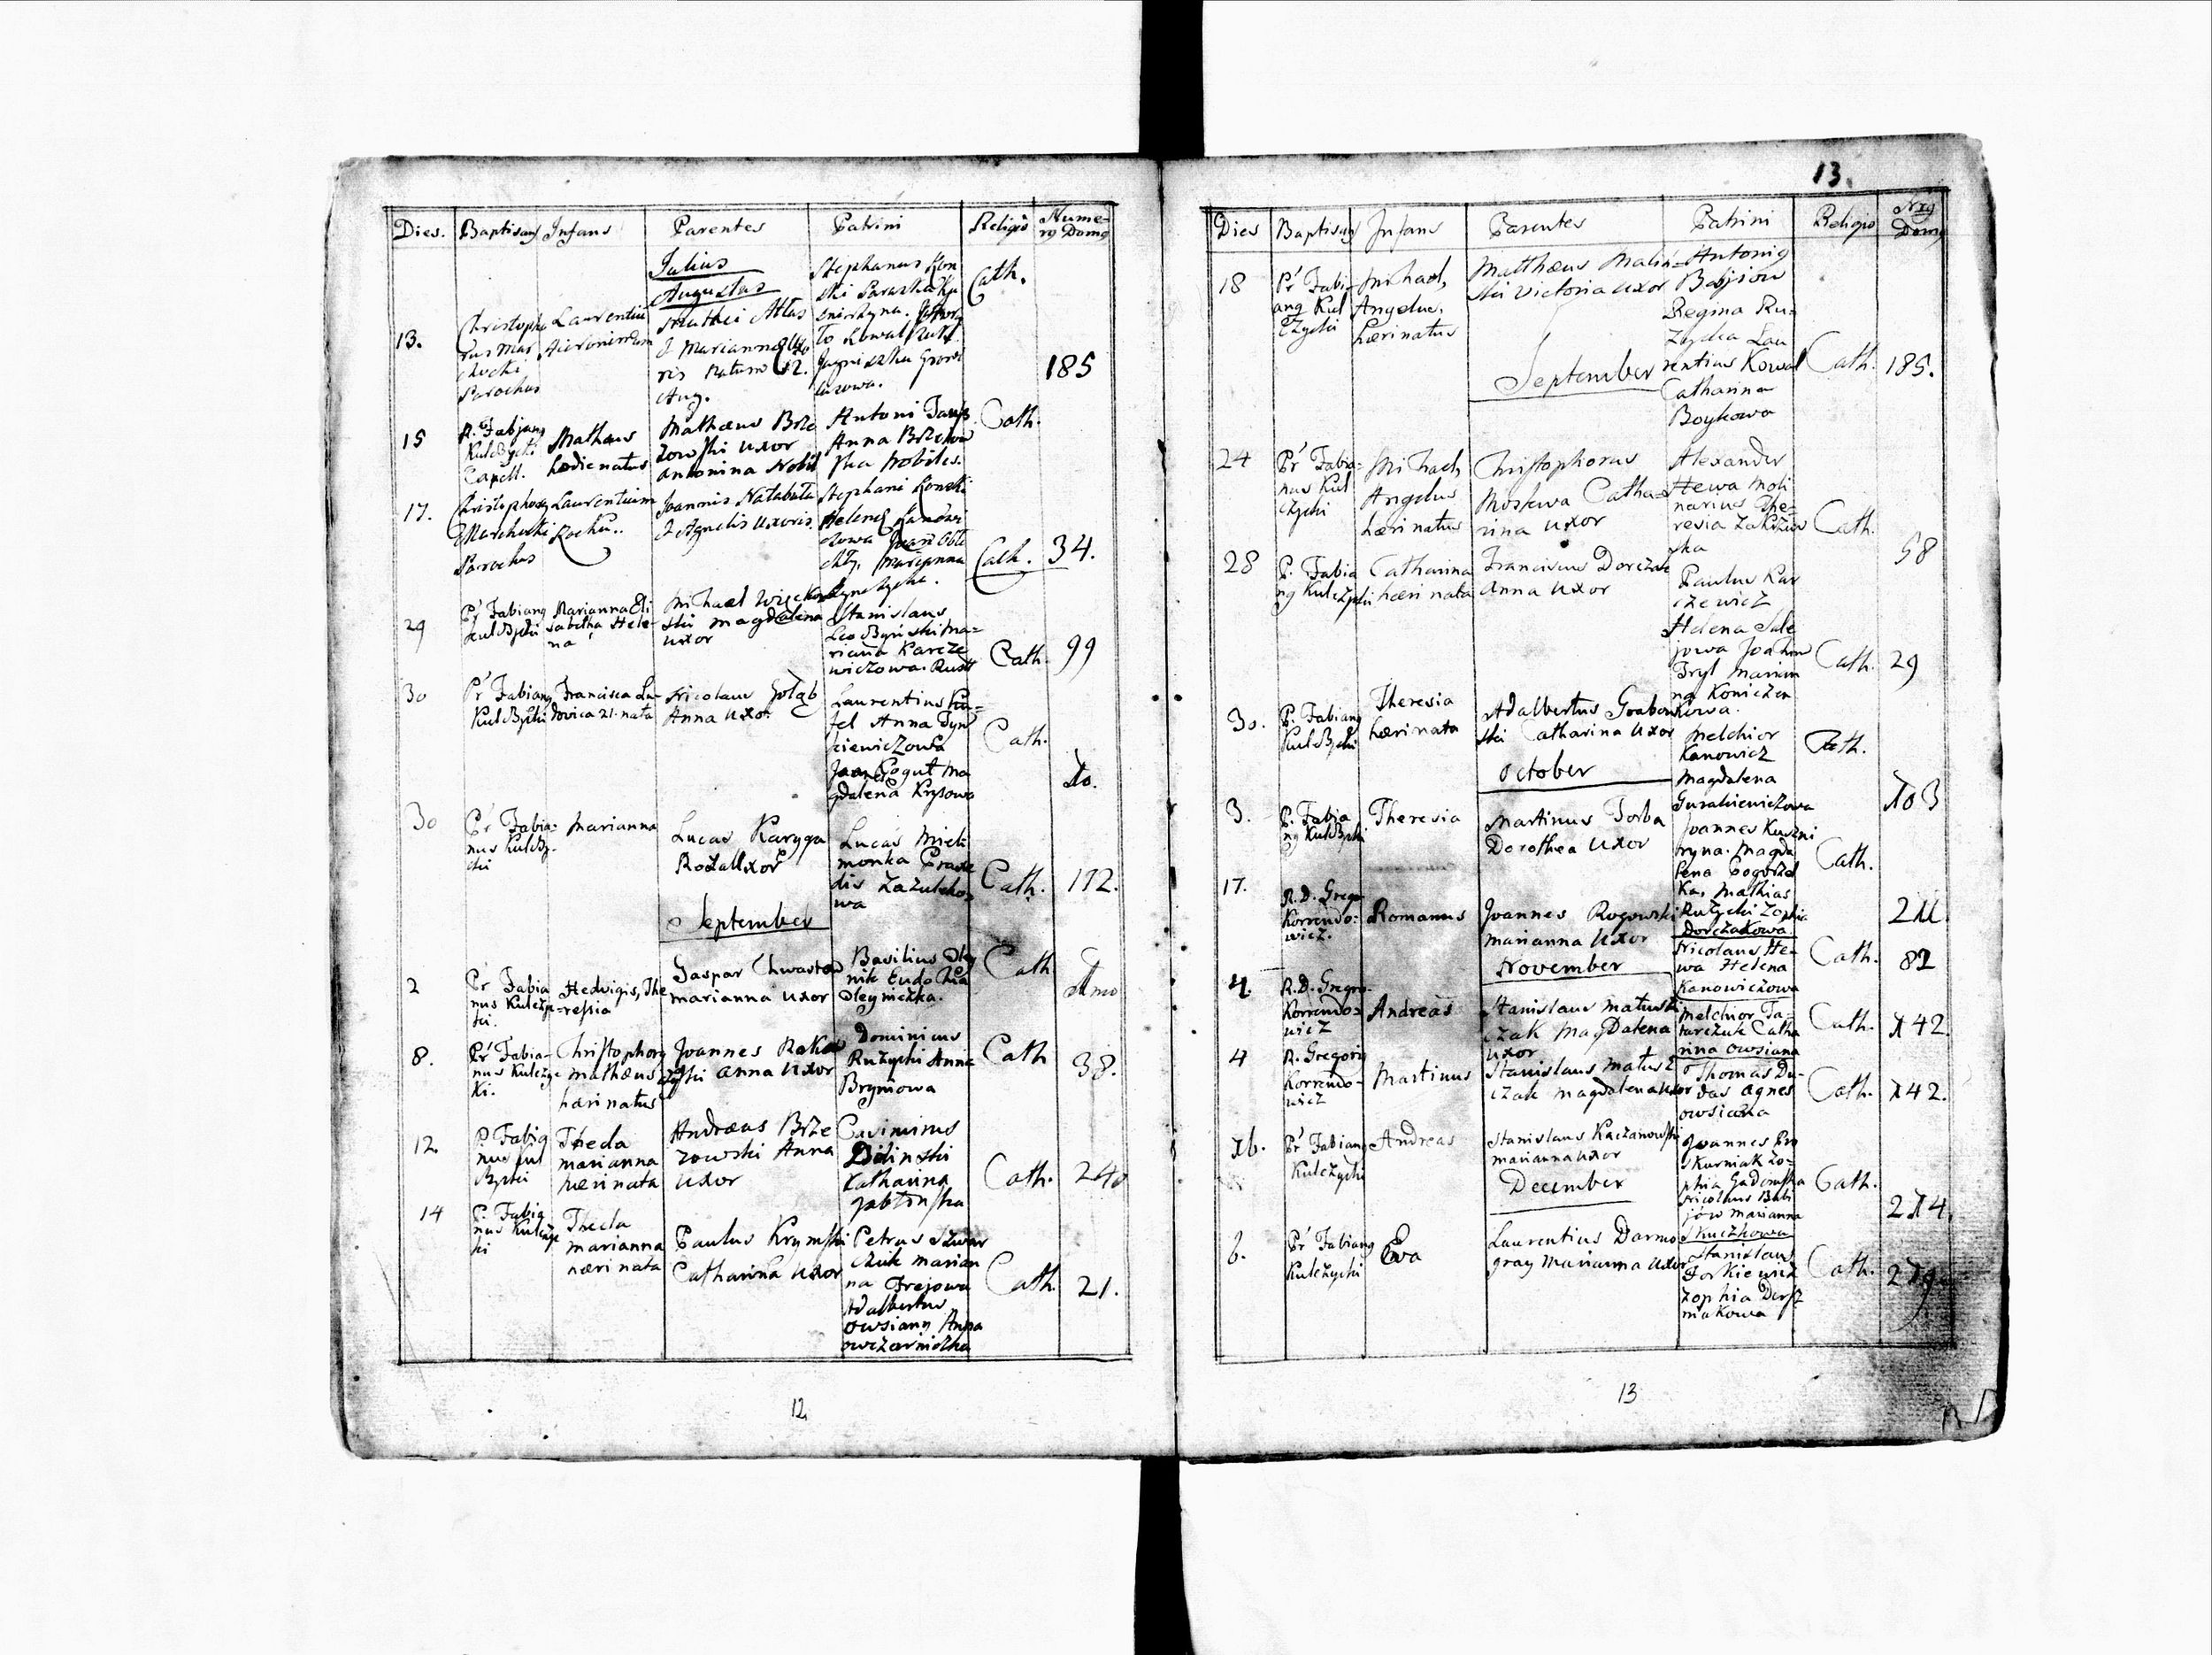 Dies. Baptisans Infans Parentes Patrini Religio Nume-
rus Domus
Julius
Augustus
13.
Christopho
rus Mar
chocki
Parochus
Laurentium
Hieronimum
Mathei Atlas
& Marianna
ris natum 12.
Aug.
Stephanus Kon
ski
Cath.
185
15
R. Fabjang
Kulczycki
Capell.
Matheus
hodie natus
Mathæus Brze
zowski uxor
Antonina Nobil
Antoni
Anna Brzezow
ska Nobiles.
Cath.
17.
Christophorg
Marchocki
Parochus
Laurentium
Rochu..
Joannis Natabuta
& Agnetis uxoris
Stephani Konski
Helena
Marianna
Cath. 34.
29
Pr Fabiang
Kulczycki
Marianna Eli
sabetha Hele-
na
Michael Więckow
ski Magdalena
uxor
Stanislaus
Ma-
rianna Karcze
wiczowa.
Cath. 99
30
Pr Fabiang
Kulczycki
Francisca Lu-
dovica 21. nata
Nicolaus Gołąb
Anna uxor.
Laurentius
Anna Tyn
kiewiczowa
Jaan Kogut Ma
gdalena Krysowa
Cath.
30
Pr Fabia-
nus Kulczy-
cki
Marianna
Lucas Karyga
Roza Uxor
Lucas Miel
monka Praxe
dis Zazulcho-
wa
Cath. 112.
September
2
Pr Fabia
nus Kulczyc
ki.
Hedvigis, The
-ressia
Gaspar Chwastow
marianna uxor
Basilius Oley
nik Eudochia
Oleyniczka.
Cath
8.
Pr Fabia-
nus Kulczyc
ki.
Christophorg
mathæus
hæri natus
Joannes Rako
anna uxor
Dominicus
Ruzycki Anna
Brymowa
Cath 38.
12.
P. Fabia
nus Kul
czycki
Thecla
marianna
hæri nata
Andræas Brze
zowski Anna
uxor
Casimirus
Bilinski
Katharina
Jabłonska
Cath. 240
14
P. Fabia
nus Kulczyc
ki
Thecla
marianna
hæri nata
Paulus Krymski
Catharina uxor
Petrus
marian
na Frejowa
Adalbertus
owsiany Anna
owczarniczka
Cath. 21.
12
13
Dies Baptisans Infans Parentes Patrini Religio Nrg
Domg
18
Pr Fabi-
ang Kul
czycki
Michael,
Angelus,
hæri natus
Matthæus Malin-
ski Victoria uxor
Antonig
Babjiow
Regina Ru-
zycka Lau
rentius Kowal
Catharina
Boykowa
September
Cath. 185.
24
Pr Fabia-
nus Kul
czycki
Michael,
Angelus
hæri natus
Christophorus
Moskwa Catha-
rina uxor
Alexander
Hewa Moli
narius The-
resia Zakrzew
ska
Cath.
58
28
P. Fabia
ng Kulczycki
Catharina
hæri nata
Franciscus Dorczak
Anna uxor
Paulus Kar
czewicz
Helena Sale
jowa Joahim
Fryl Marian
na Koniczen
kowa.
Cath. 29
30.
P. Fabiang
Kulczycki
Theresia
hæri nata
Adalbertus Grabow
ski Catharina uxor
Melchior
Kanowicz
Magdalena
Gurakiewiczowa
Cath.
October
103
3.
P. Fabia
ng Kulczycki
Theresia
Martinus Torba
Dorothea uxor
Joannes Kuzni
Magda
lena Pogorzel
ka, Mathias
Ruzycki Zophia
Dorczakowa
Cath.
211
17.
R.D. Grego
Korrendo-
wicz.
Romanus
Joannes Rogowski
marianna uxor
Nicolaus He-
wa Helena
Kanowiczowa
Cath. 82
November
4.
R.D. Gregro.
Korrendo-
wicz
Andreas
Stanislaus Matusz
czak Magdalena
uxor
Melchior Ta-
tarczuk Catha
rina owsiana
Cath. 142.
4
R. Gregorig
Korrendo-
wicz
Martinus
Stanislaus Matusz
czak Magdalena uxor
Thomas Du-
das Agnes
owsiana
Cath. 142.
16.
Pr Fabiang
Kulczycki
Andreas
Stanislaus Kaczanowski
marianna uxor
Joannes Pro
skurniak Zo-
phia Gadomska
Nicolaus Babi
jów marianna
Skuczkowa
Cath.
214.
December
6.
Pr Fabiang
Kulczycki
Eva
Laurentius Darmo
gray Marianna uxor
Stanislaus
Forkiewicz
Zophia
makowa
Cath.
13